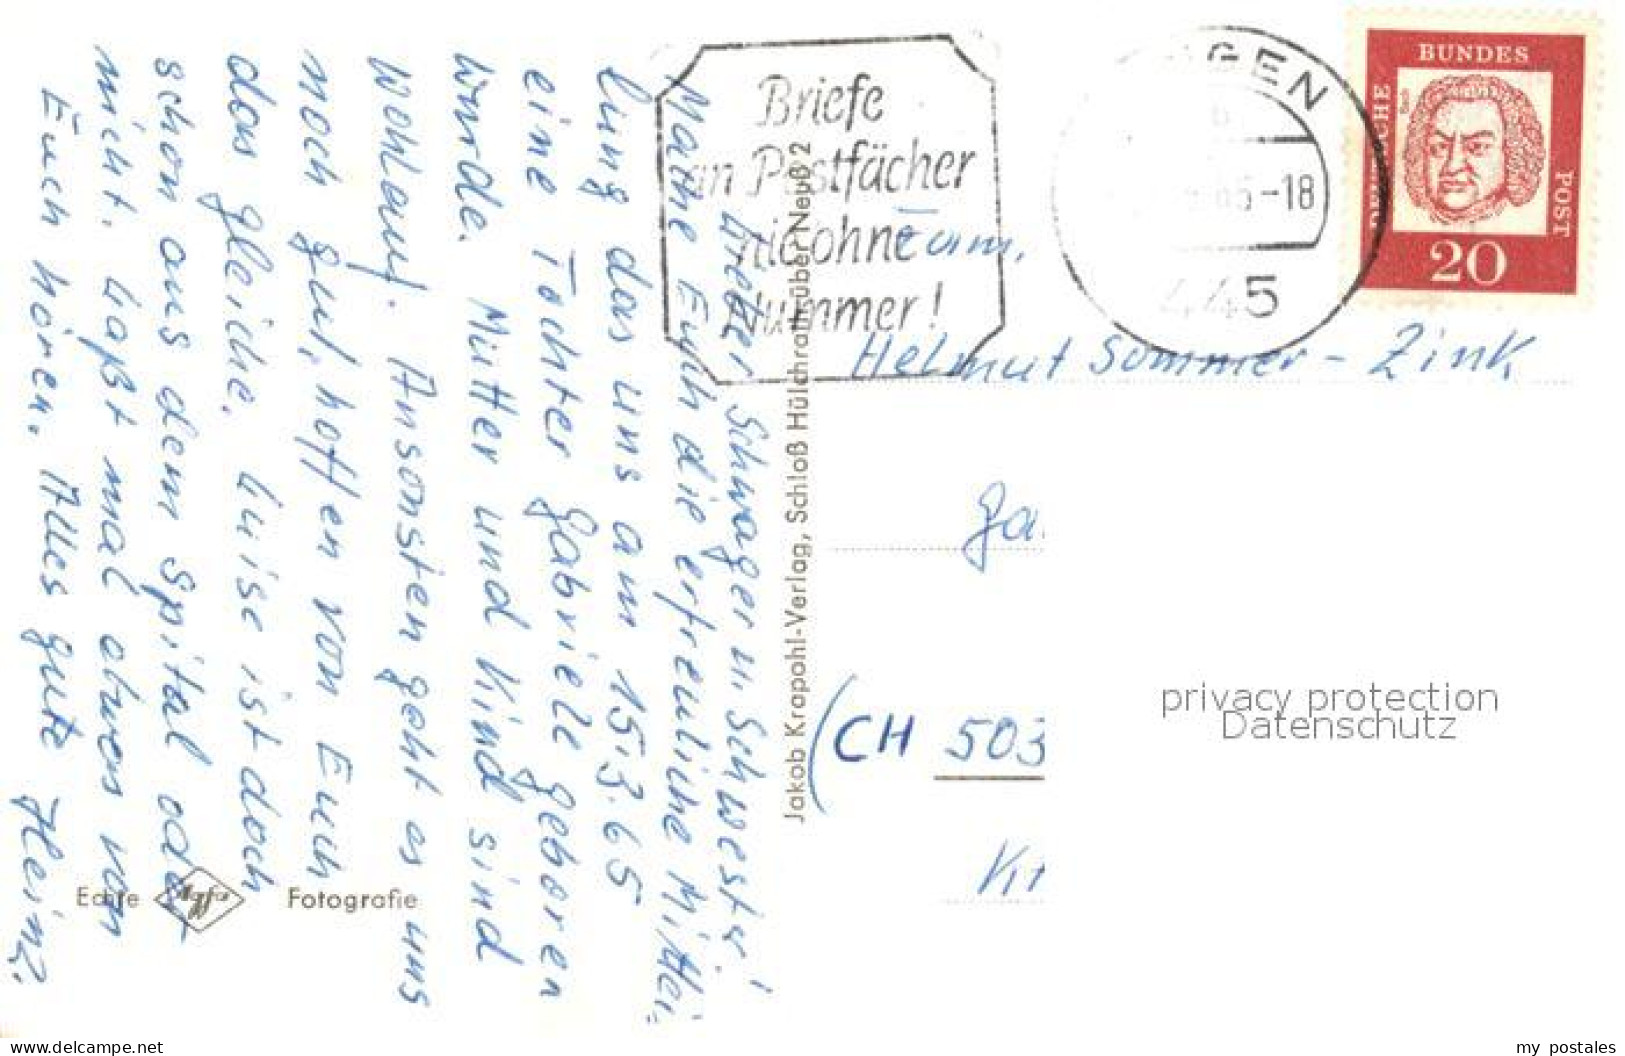 Lieber Schwager u. Schwester!
Mache Euch die erfreuliche Mittei=
lung das uns am 15.3.65
eine Tochter Gabriele geboren
wurde. Mutter und Kind sind
wohlauf. Ansonsten geht es uns
noch gut, hoffen von Euch
das gleiche. Luise ist doch
schon aus dem Spital oder
nicht. Laßt mal etwas von
Euch hören. Alles gute Heinz.
Echte Agfa Fotografie
Jakob Krapohl-Verlag, Schloß Hülchrath über Neuß 2
Briefe
an Postfächer
nie ohne
Nummer!
GEN
65-18
445
DEUTSCHE
BUNDES
POST
20
Fam.
Helmut Sommer - Zink
Ga
(CH 503
privacy protection
Datenschutz
www.delcampe.net
my_postales